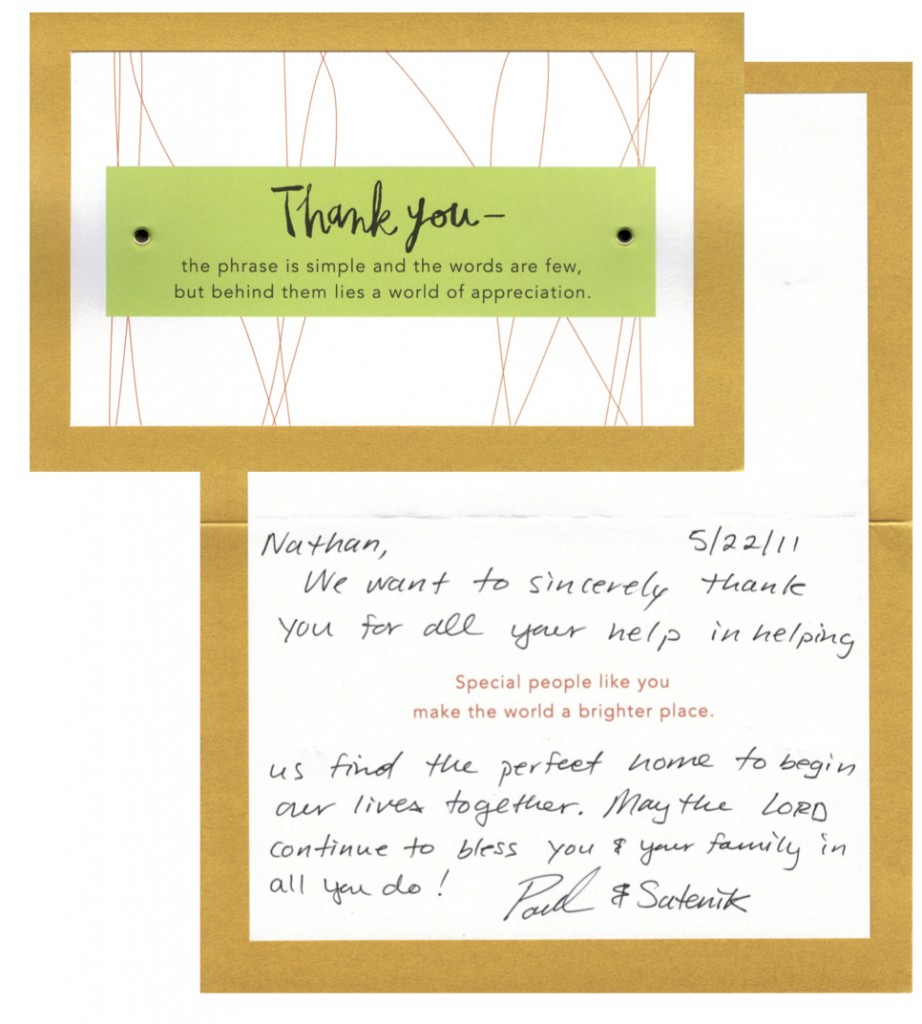 Thank you—
the phrase is simple and the words are few,
but behind them lies a world of appreciation.
Nathan, 5/22/11
We want to sincerely thank
you for all your help in helping
Special people like you
make the world a brighter place.
us find the perfect home to begin
our lives together. May the LORD
continue to bless you & your family in
all you do! Paul & Satenik